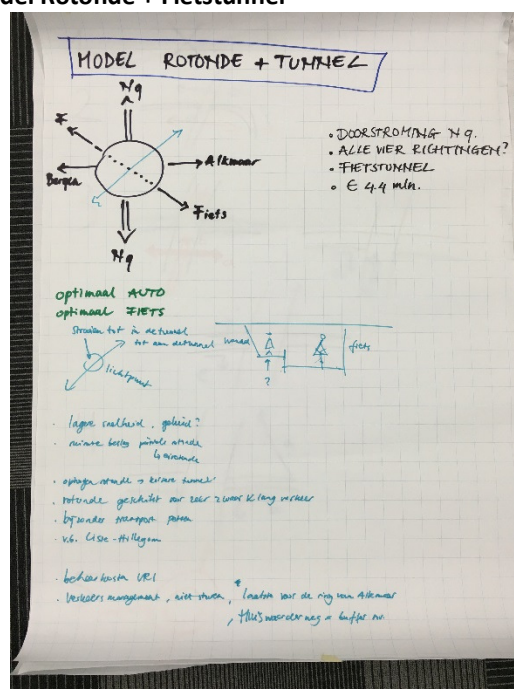 del Rotonde + Fietstunnel
MODEL ROTONDE + TUNNEL
N9
F
Alkmaar
Bergen
Fiets
N9
• DOORSTROMING N9.
• ALLE VIER RICHTINGEN?
• FIETSTUNNEL
• € 4.4 mln.
optimaal AUTO
optimaal FIETS
tot in de tunnel
tot aan de tunnel
lichtpunt
fiets
?
• lagere snelheid, geluid?
• ruimte beslag rotonde
• rotonde → kortere tunnel
• rotonde geschikt voor zeer zwaar & lang verkeer
• bijzonder transport
• v.b. Lisse - Hillegom
• beheerkosten VRI
• verkeersmanagement, niet sturen, laatste voor de ring van Alkmaar